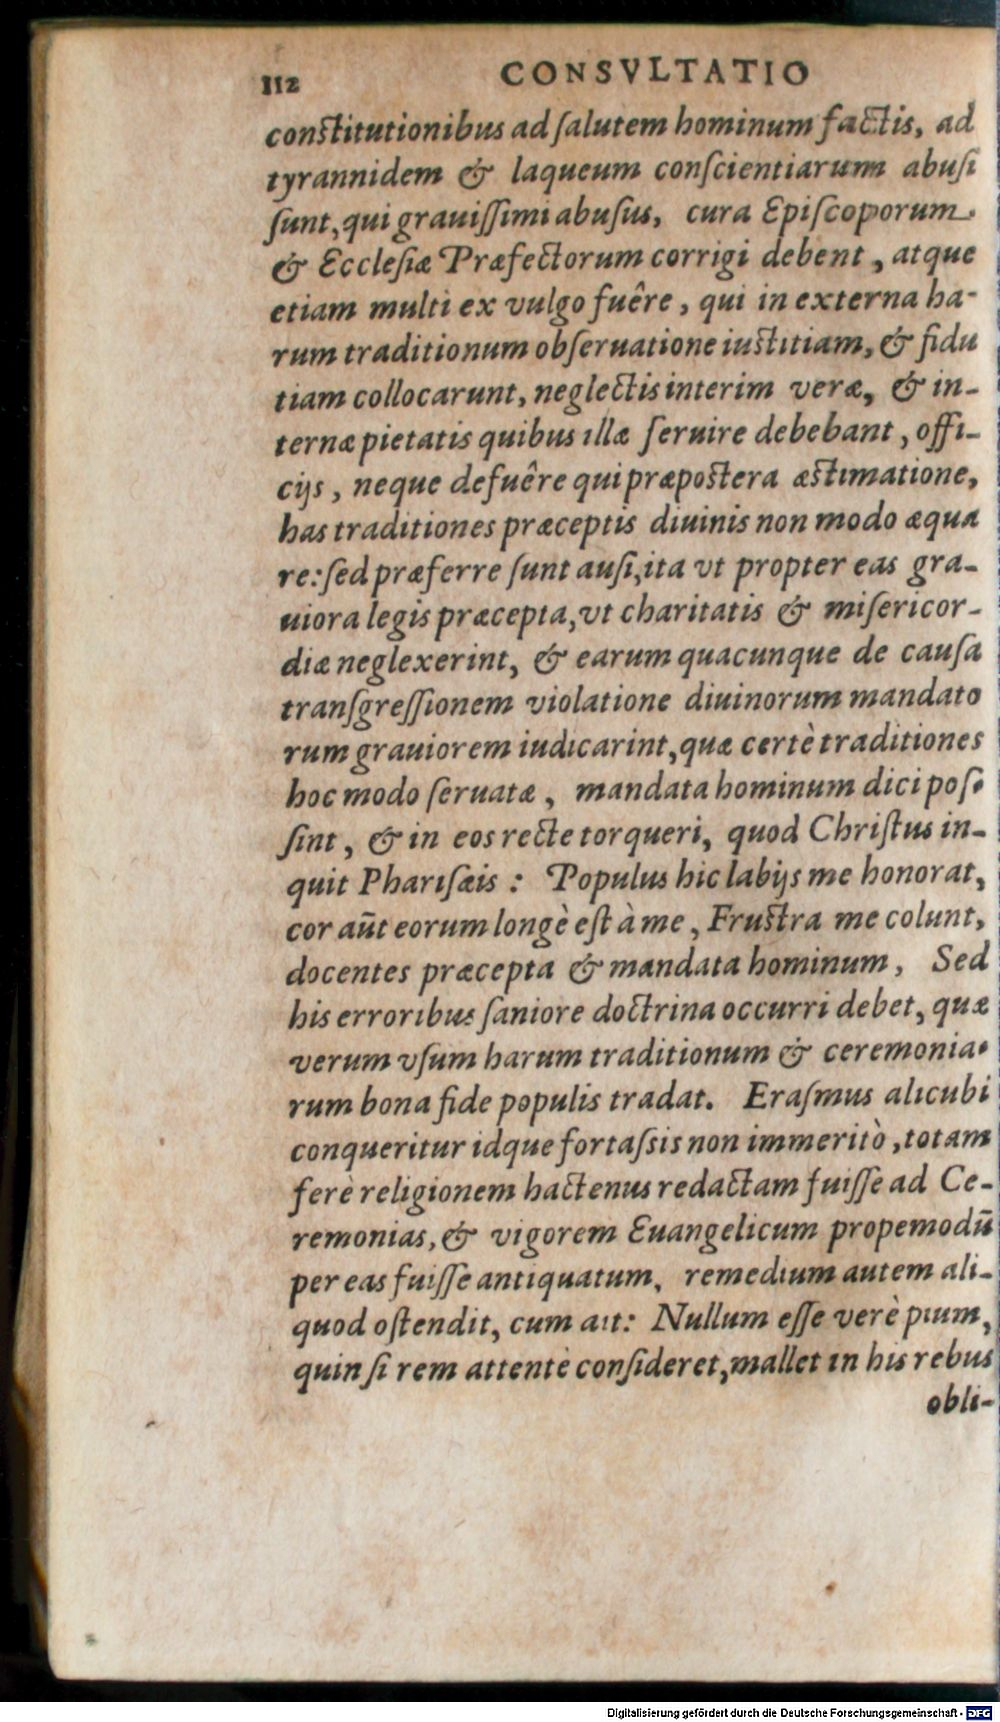 112 CONSVLTATIO
constitutionibus ad ſalutem hominum factis, ad
tyrannidem & laqueum conſcientiarum abuſi
ſunt, qui grauiſſimi abuſus, cura Epiſcoporum
& Eccleſiæ Præfectorum corrigi debent, atque
etiam multi ex vulgo fuêre, qui in externa ha-
rum traditionum obſeruatione iustitiam, & fidu
tiam collocarunt, neglectis interim veræ, & in-
ternæ pietatis quibus illæ ſeruire debebant, offi-
cijs, neque defuêre qui præpostera æstimatione,
has traditiones præceptis diuinis non modo æqua
re: ſed præferre ſunt auſi, ita vt propter eas gra-
uiora legis præcepta, vt charitatis & miſericor-
diæ neglexerint, & earum quacunque de cauſa
tranſgreſſionem violatione diuinorum mandato
rum grauiorem iudicarint, quæ certè traditiones
hoc modo ſeruatæ, mandata hominum dici poſ-
ſint, & in eos recte torqueri, quod Chriſtus in-
quit Phariſæis: Populus hic labijs me honorat,
cor aūt eorum longè eſt à me, Frustra me colunt,
docentes præcepta & mandata hominum, Sed
his erroribus ſaniore doctrina occurri debet, quæ
verum vſum harum traditionum & ceremonia-
rum bona fide populis tradat. Eraſmus alicubi
conqueritur idque fortaſsis non immeritò, totam
ferè religionem hactenus redactam fuiſſe ad Ce-
remonias, & vigorem Euangelicum propemodū
per eas fuiſſe antiquatum, remedium autem ali-
quod oſtendit, cum ait: Nullum eſſe verè pium,
quin ſi rem attentè conſideret, mallet in his rebus
obli-
Digitalisierung gefördert durch die Deutsche Forschungsgemeinschaft - DFG